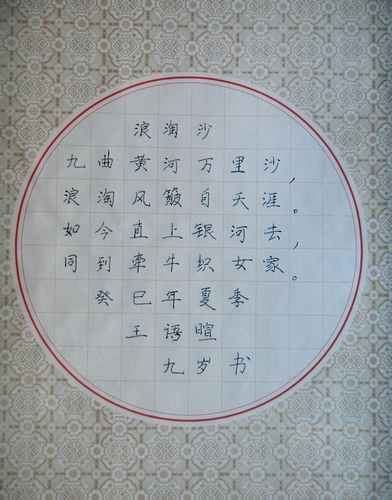 浪淘沙
九曲黄河万里沙，
浪淘风簸自天涯。
如今直上银河去，
同到牵牛织女家。
癸巳年夏季
王语暄
九岁书